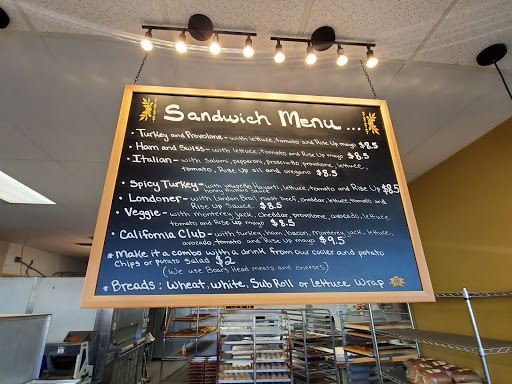 Sandwich Menu...
• Turkey and Provolone - with lettuce, tomato and Rise Up mayo $8.5
• Ham and Swiss - with lettuce, tomato and Rise Up mayo $8.5
• Italian - with Salami, pepperoni, prosciutto, provolone, lettuce,
tomato, Rise Up oil and oregano $8.5
• Spicy Turkey - with jalapeño Havarti, lettuce, tomato and Rise Up $8.5
honey mustard sauce
• Londoner - with London Broil roast beef, cheddar, lettuce, tomato and
Rise Up Sauce $8.5
• Veggie - with monterey jack, cheddar, provolone, avocado, lettuce,
tomato and Rise Up mayo $8.5
• California Club - with turkey, ham, bacon, Monterey jack, lettuce,
avocado, tomato and Rise Up mayo $9.5
* Make it a combo with a drink from our cooler and potato
chips or potato salad $2
(We use Boars Head meats and cheeses)
* Breads: Wheat, White, Sub Roll or Lettuce Wrap